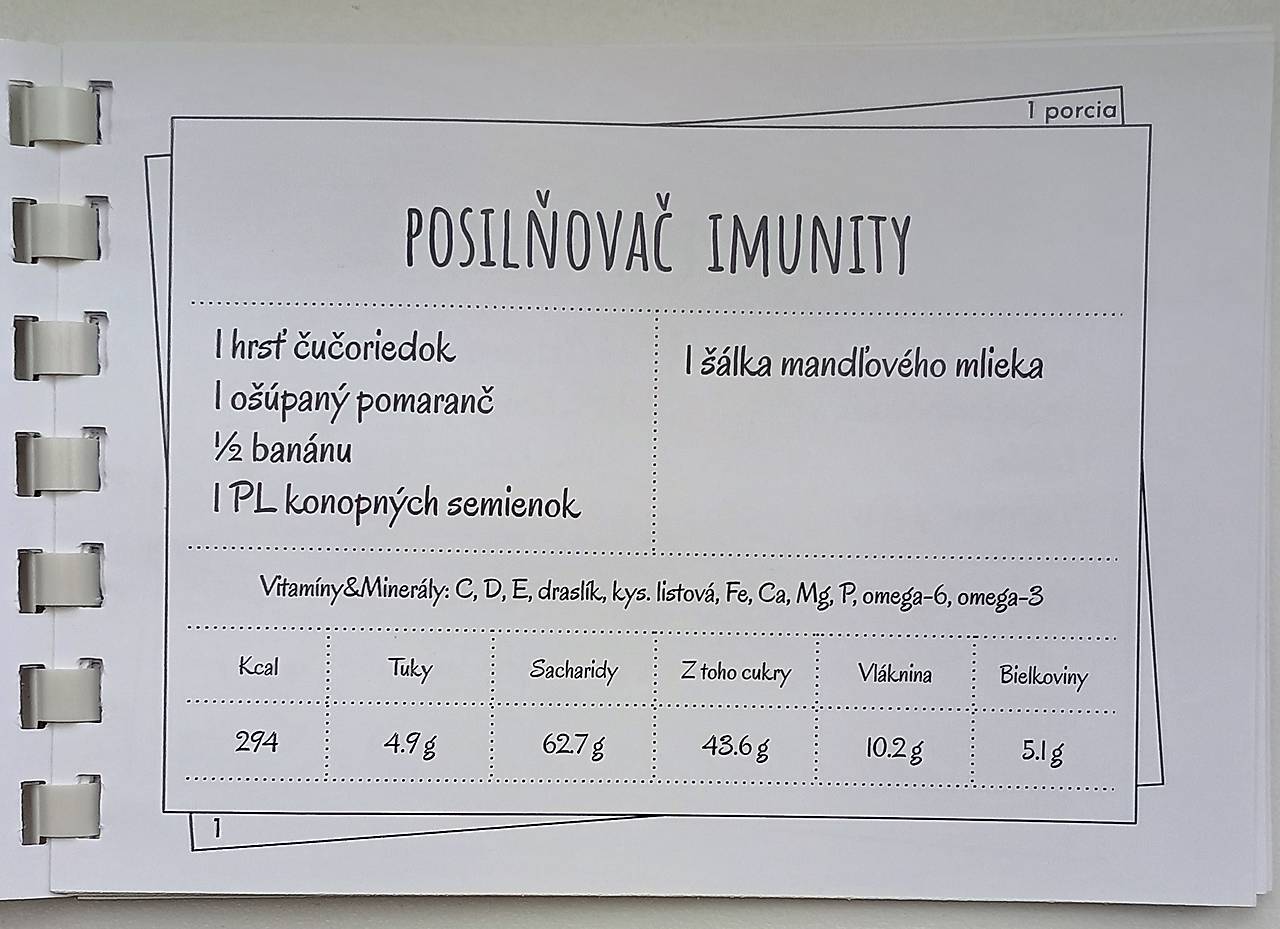 1 porcia
POSILŇOVAČ IMUNITY
1 hrsť čučoriedok
1 ošúpaný pomaranč
½ banánu
1 PL konopných semienok
1 šálka mandľového mlieka
Vitamíny&Minerály: C, D, E, draslík, kys. listová, Fe, Ca, Mg, P, omega-6, omega-3
Kcal Tuky Sacharidy Z toho cukry Vláknina Bielkoviny
294 4.9 g 62.7 g 43.6 g 10.2 g 5.1 g
1